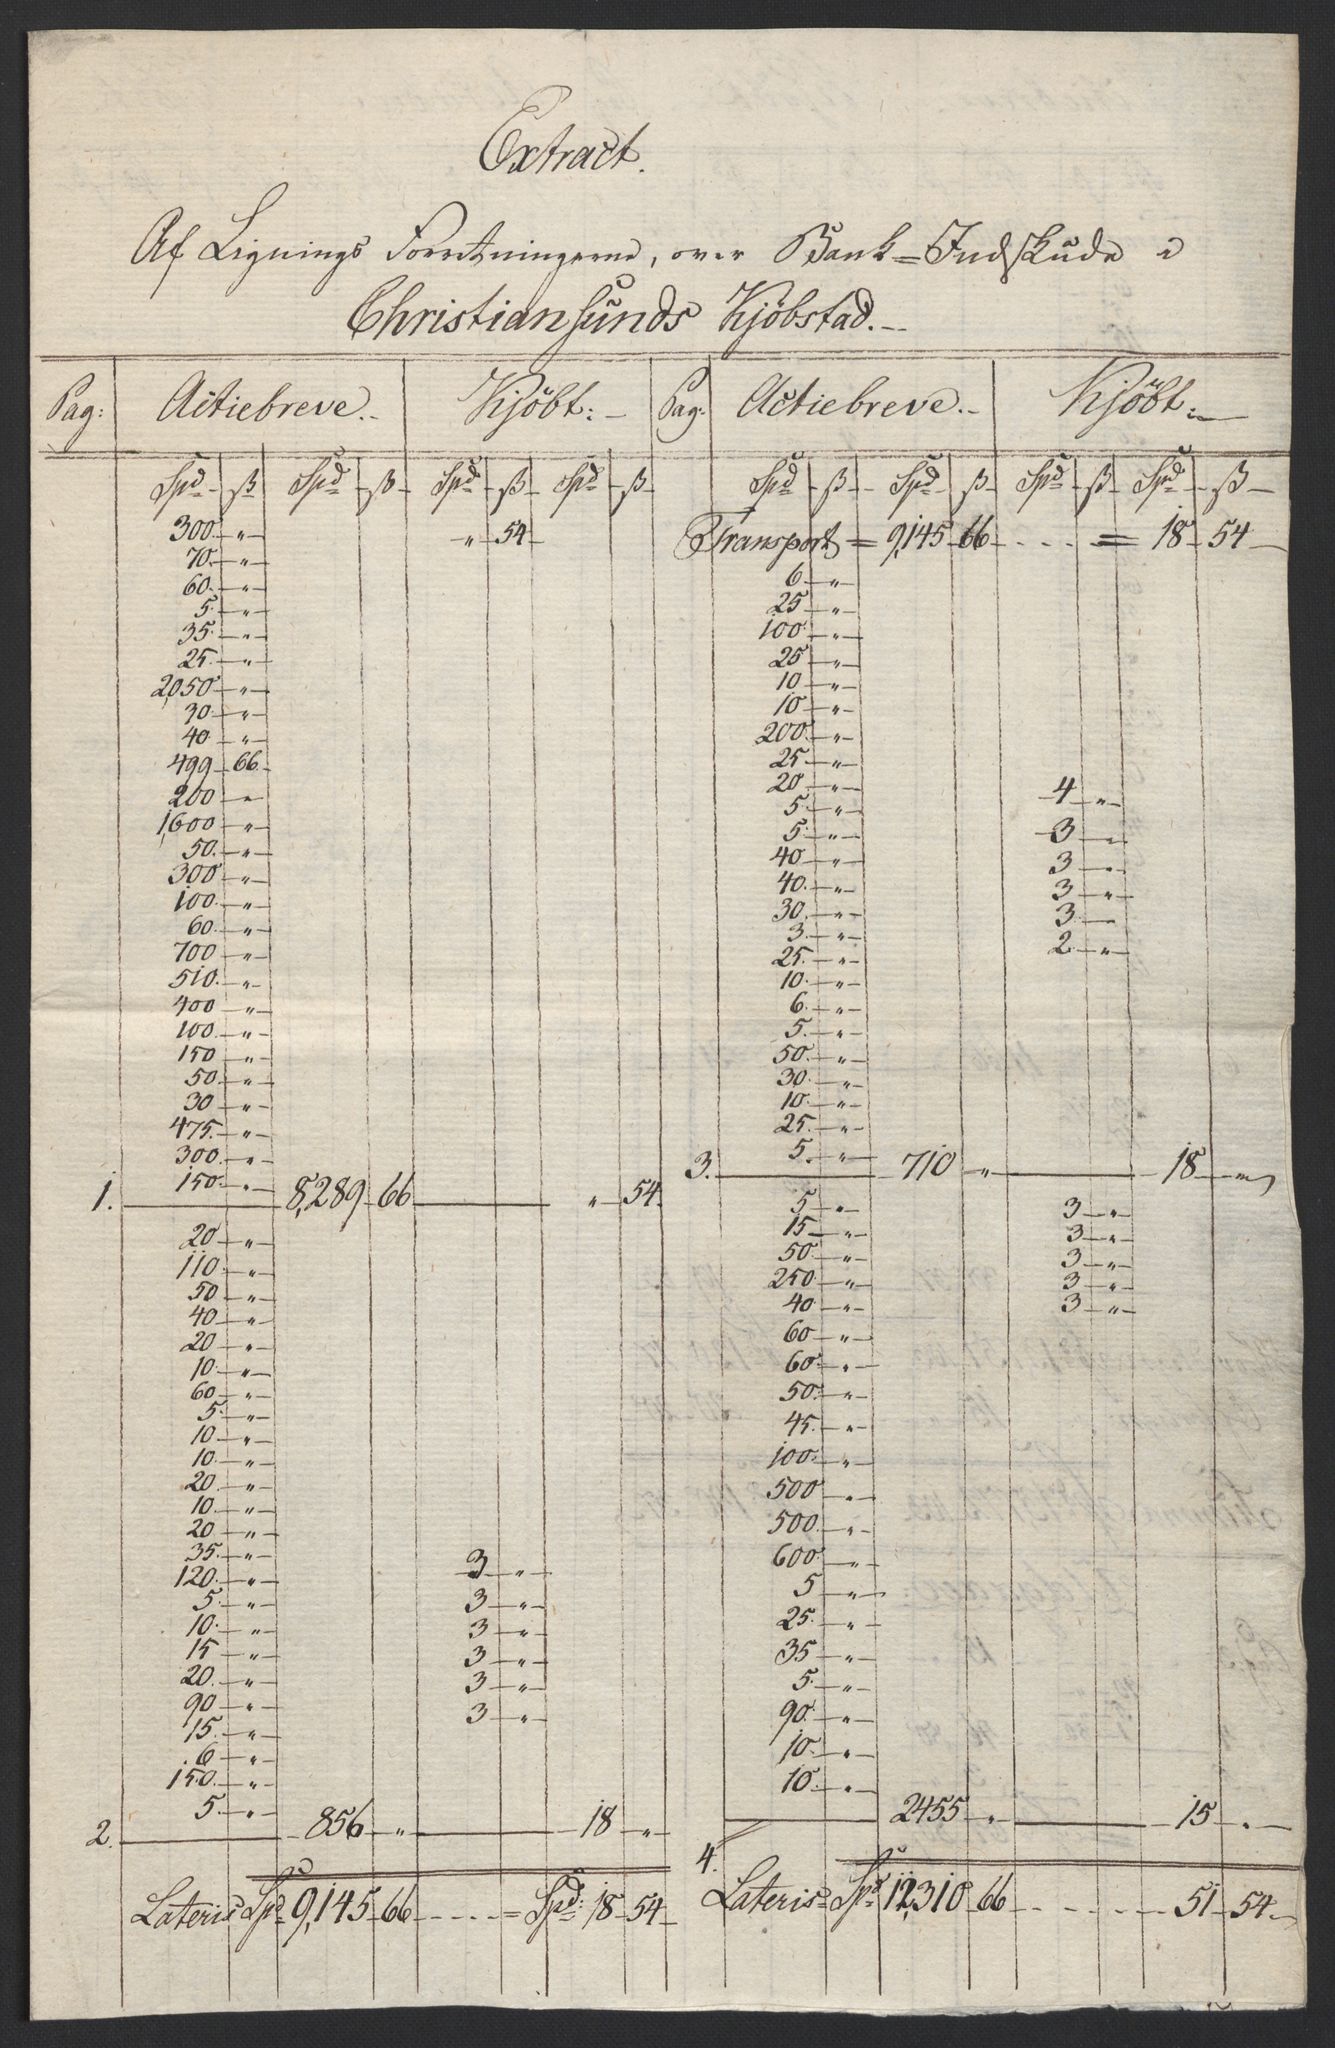 Extract.
Af Lignings Forretningerne, over Bank=Indskude i
Christiansunds Kjöbstad.
Pag: Actiebreve. Kjöbt: Pag: Actiebreve. Kjöbt:
Spd ß Spd ß Spd ß Spd ß Spd ß Spd ß Spd ß Spd ß
300 " " 54
70 "
60 "
5 "
35 "
25 "
2,050 "
30 "
40 "
499 66
200 "
1,600 "
50 "
300 "
100 "
60 "
700 "
510 "
400 "
100 "
150 "
50 "
30 "
475 "
300 "
150 "
1. 8,289 66 " 54
20 "
110 "
50 "
40 "
20 "
10 "
60 "
5 "
10 "
10 "
20 "
10 "
20 "
35 "
120 " 3 "
5 " 3 "
10 " 3 "
15 " 3 "
20 " 3 "
90 " 3 "
15 "
6 "
150 "
5 "
2. 856 " 18 "
Lateris Spd 9,145 66 = Spd: 18 54
Transport = 9,145 66 = 18 54
6 "
25 "
100 "
25 "
10 "
10 "
200 "
25 "
20 " 4 "
5 "
5 " 3 "
40 " 3 "
40 " 3 "
30 " 3
3 " 2 "
25 "
10 "
6 "
5 "
50 "
30 "
10 "
25 "
5 "
3. 710 " 18 "
5 " 3 "
15 " 3 "
50 " 3 "
250 " 3 "
40 " 3 "
60 "
60 "
50 "
45 "
100 "
500 "
500 "
600 "
5 "
25 "
35 "
5 "
90 "
10 "
10 "
4. 2455 " 15 "
Lateris Spd 12,310 66 51 54